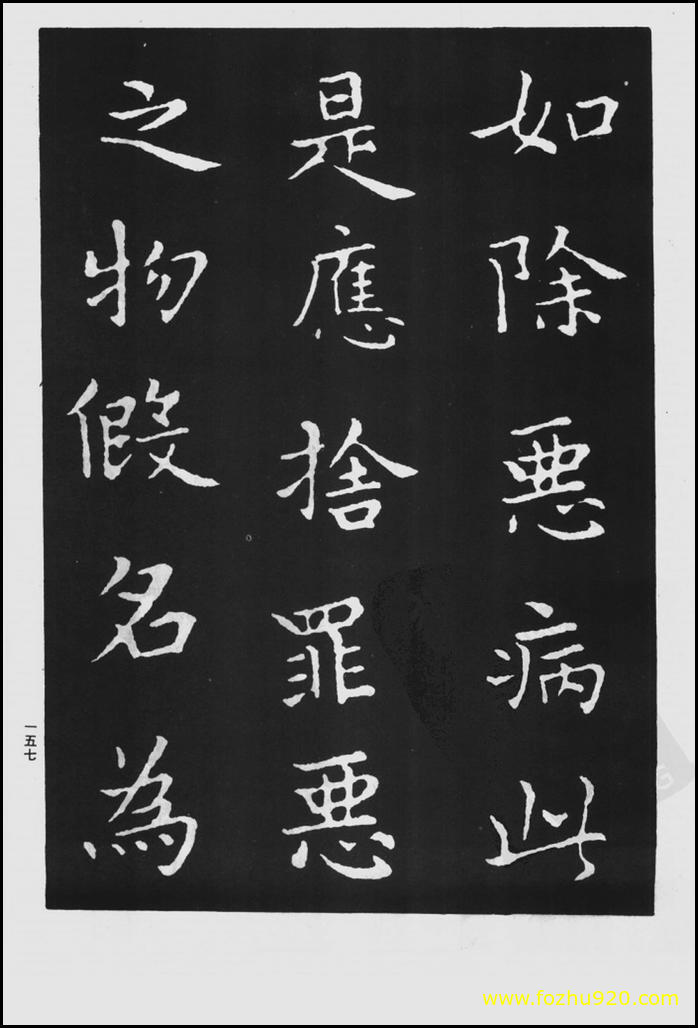 如除惡病此
是應捨罪惡
之物假名為
一五七
www.fozhu920.com